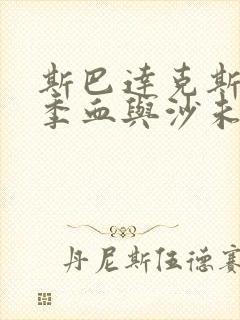 斯巴達克斯
季血與沙未
丹尼斯伍德賽